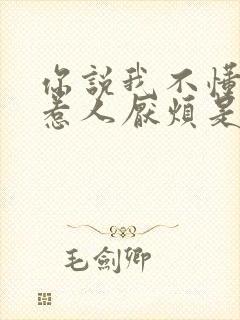 你說我不懂
惹人厭煩是
毛劍卿